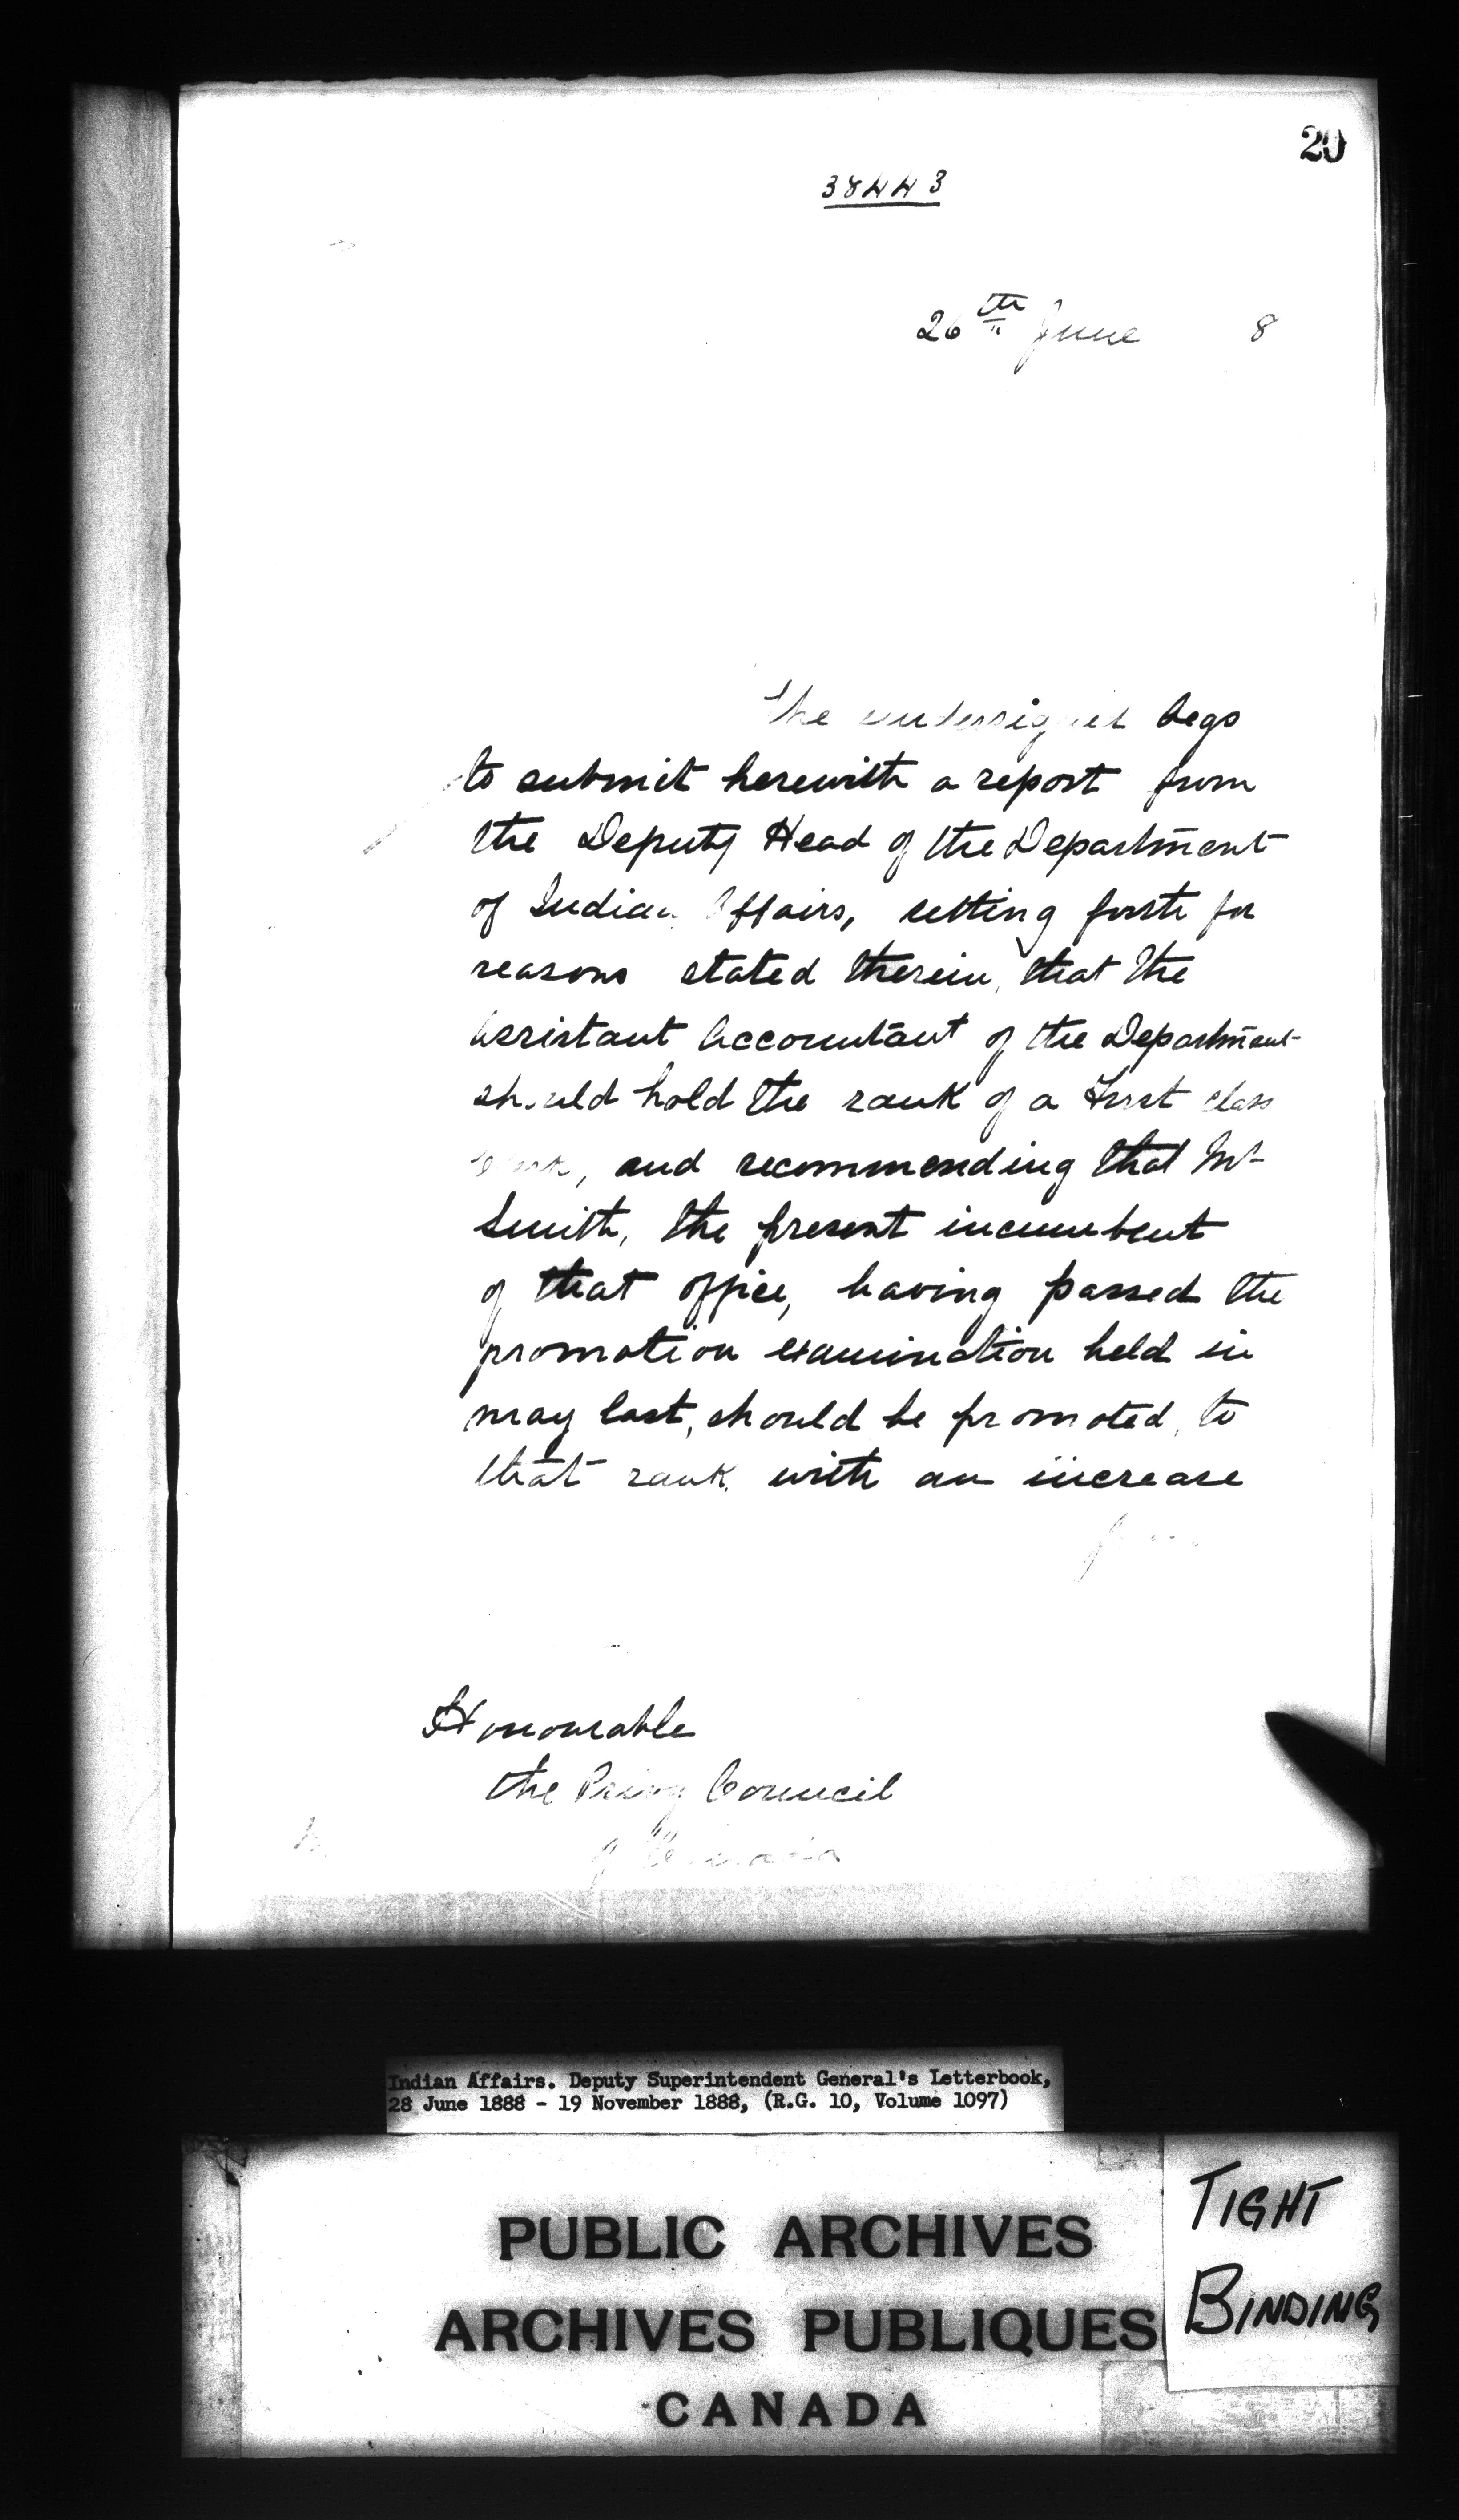 20
38443
26th June 8
The undersigned begs
to submit herewith a report from
the Deputy Head of the Department
of Indian Affairs, setting forth for
reasons stated therein, that the
Assistant Accountant of the Department
should hold the rank of a First Class
Clerk, and recommending that Mr
Smith, the present incumbent
of that office, having passed the
promotion examination held in
may last, should be promoted, to
that rank, with an increase
Honourable
the Privy Council
of Canada
Indian Affairs. Deputy Superintendent General's Letterbook,
28 June 1888 - 19 November 1888, (R.G. 10, Volume 1097)
PUBLIC ARCHIVES
ARCHIVES PUBLIQUES
CANADA
TIGHT
BINDING